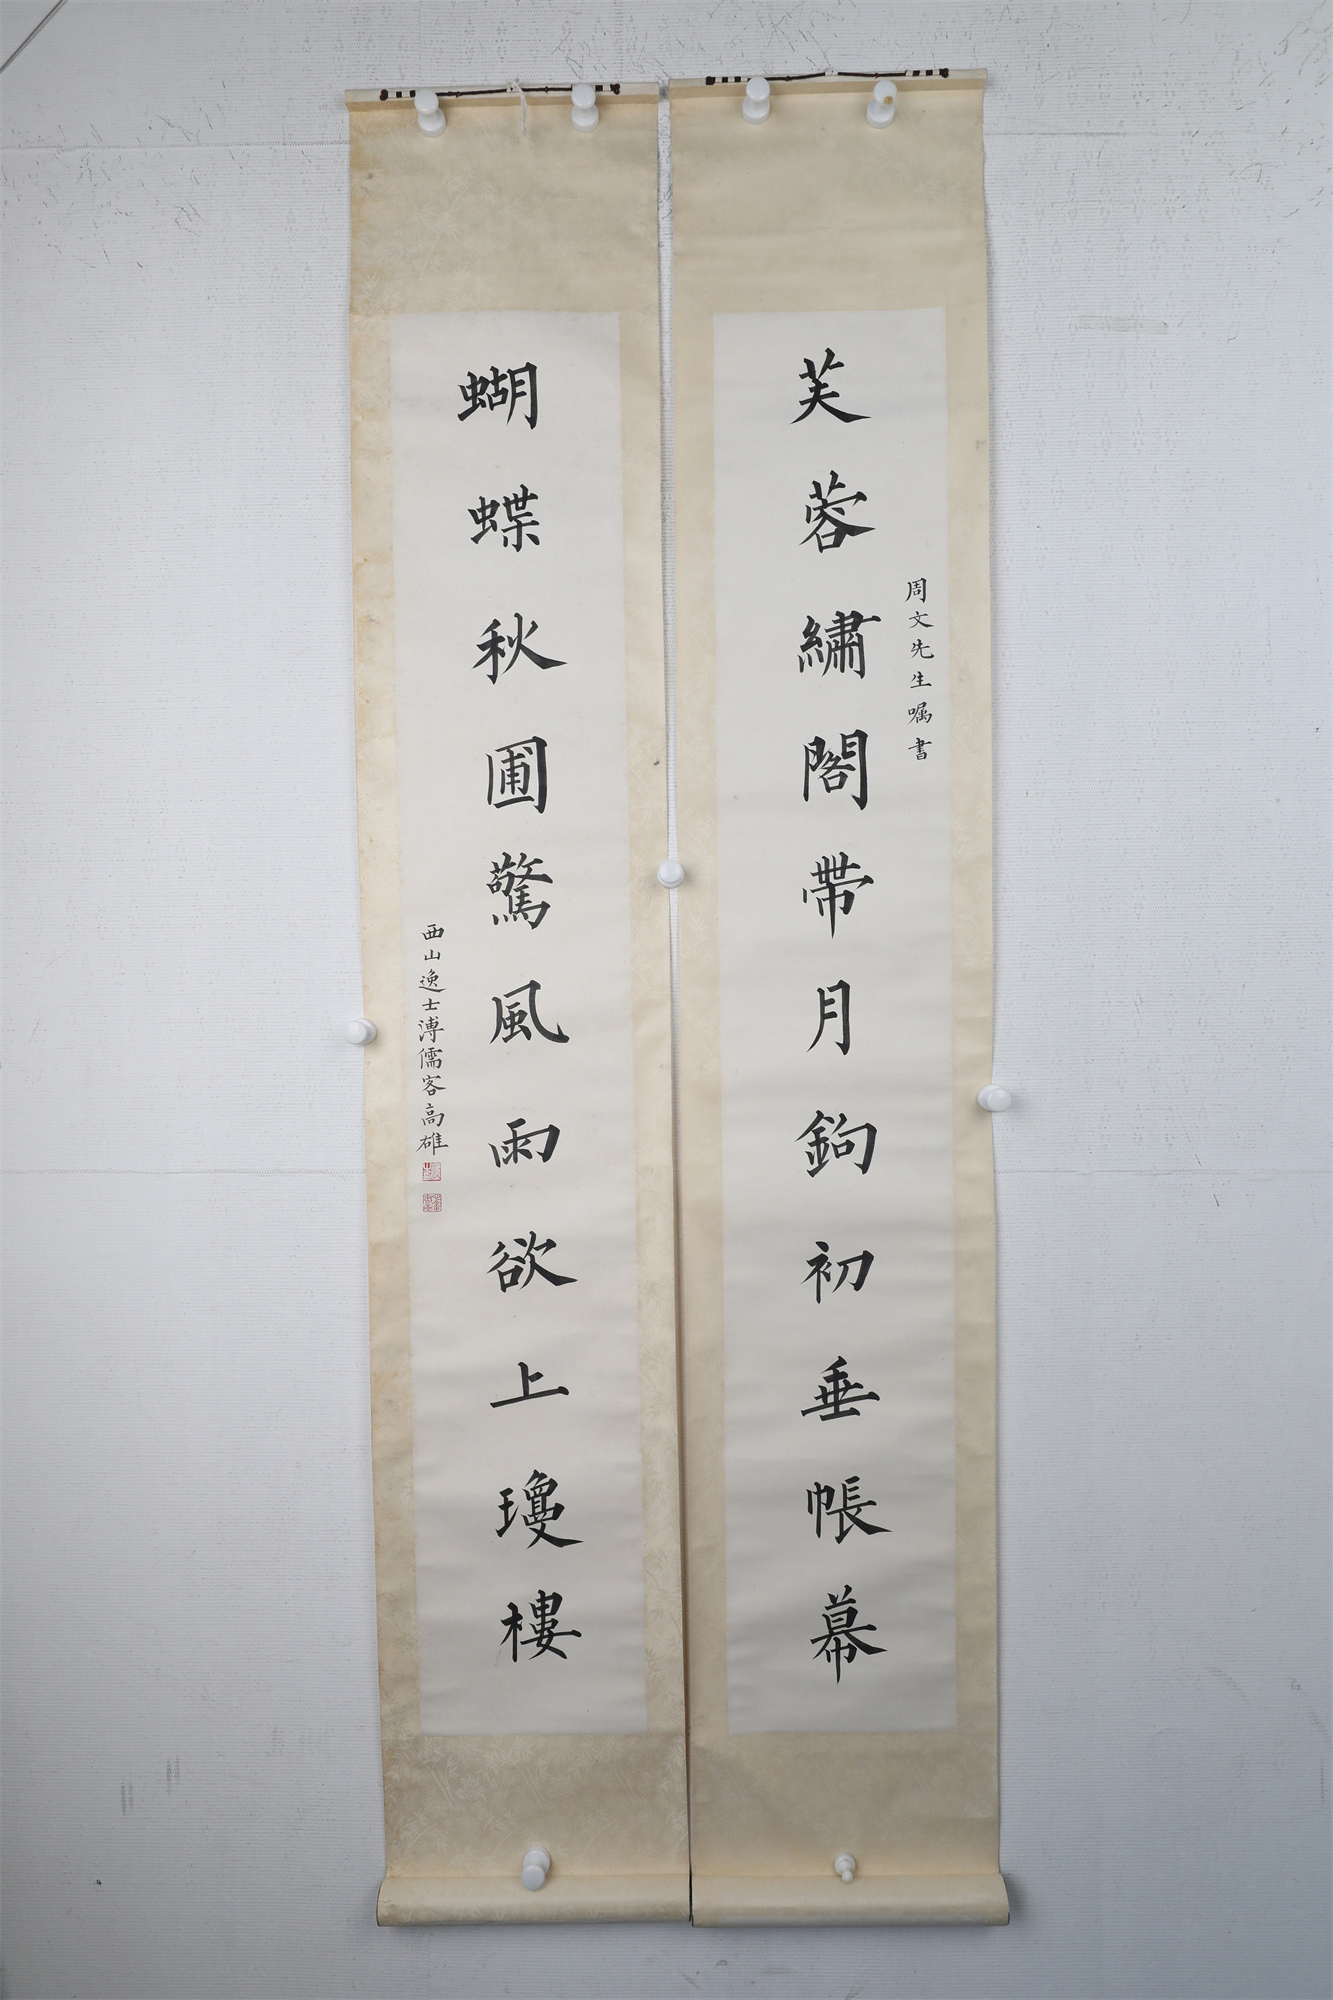 周文先生嘱書
芙蓉繡閣帶月鉤初垂帳幕
蝴蝶秋圃驚風雨欲上瓊樓
西山逸士溥儒客高雄